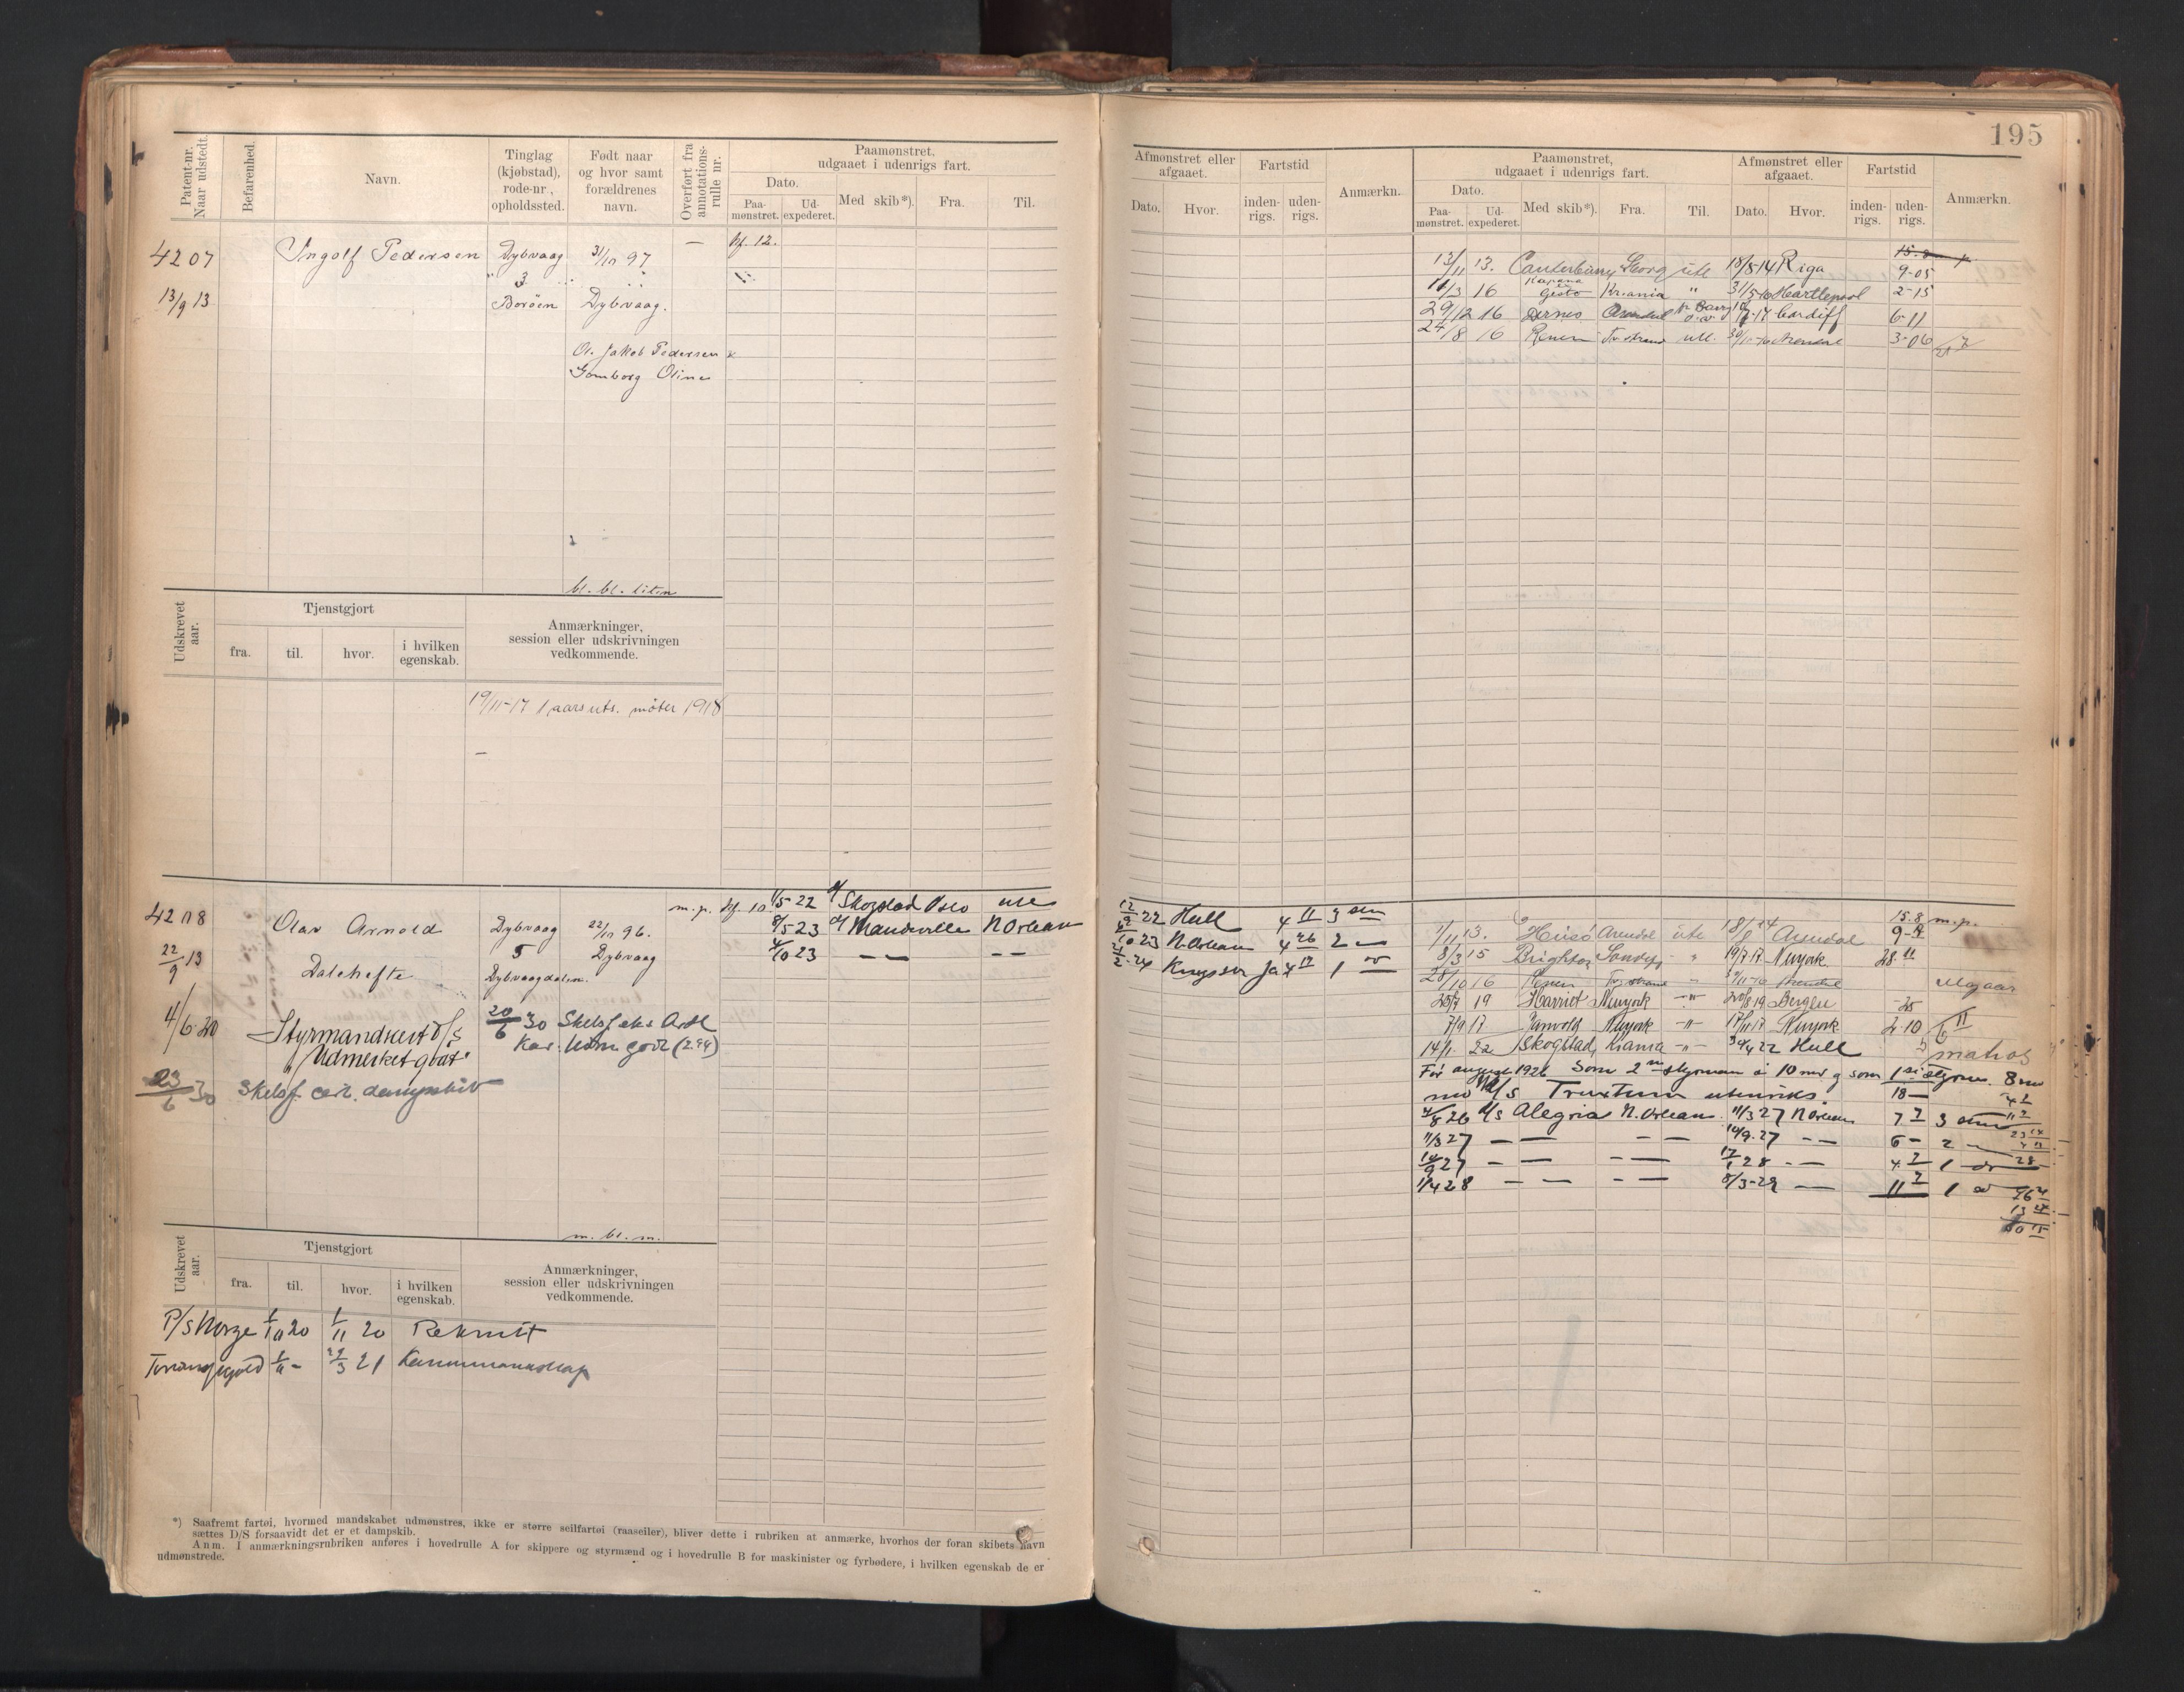 195
Patent-nr. Naar udstedt.
Befarenhed.
Navn.
Tinglag (kjøbstad), rode-nr., opholdssted.
Født naar og hvor samt forældrenes navn.
Overført fra annotations-rulle nr.
Paamønstret, udgaaet i udenrigs fart.
Dato.
Paa-mønstret.
Ud-expederet.
Med skib*).
Fra.
Til.
4207
Ingolf Pedersen
Dybvaag
31/10 97
—
Hf. 12.
3
13/9 13
Borøen
Dybvaag.
Ol. Jakob Pedersen
Gomborg Oline
bl. bl. liten
Udskrevet aar.
Tjenstgjort
fra.
til.
hvor.
i hvilken egenskab.
Anmærkninger, session eller udskrivningen vedkommende.
19/11-17 1 aars uts. møter 1918
4208
Olav Arnold
Dybvaag
22/11 96.
m.p.
Hf. 10
1/5 22 Skogstad Oslo ute
8/5 23 Mandeville N Orlean
4/10 23 — — — —
22/9 13
Dalehefte
5
Dybvaag
Dybvaagdalen.
4/6 20
Styrmandscert D/S
"Udmerket godt"
20/6 30
Kar. Udm. godt (2.94)
23/6 30 Skelsf. cert. dampskib
m. bl. m.
Udskrevet aar.
Tjenstgjort
fra.
til.
hvor.
i hvilken egenskab.
Anmærkninger, session eller udskrivningen vedkommende.
P/S Norge 1/10 20 1/11 20 Rekrut
1/11 - 22/3 21
*) Saafremt fartøi, hvormed mandskabet udmønstres, ikke er større seilfartøi (raaseiler), bliver dette i rubriken at anmærke, hvorhos der foran skibets navn
sættes D/S forsaavidt det er et dampskib.
Anm. I anmærkningsrubriken anføres i hovedrulle A for skippere og styrmænd og i hovedrulle B for maskinister og fyrbødere, i hvilken egenskab de er
udmønstrede.
Afmønstret eller afgaaet.
Dato.
Hvor.
Fartstid
inden-rigs.
uden-rigs.
Anmærkn.
Paamønstret, udgaaet i udenrigs fart.
Dato.
Paa-mønstret.
Ud-expederet.
Med skib*).
Fra.
Til.
Afmønstret eller afgaaet.
Dato.
Hvor.
Fartstid
inden-rigs.
uden-rigs.
Anmærkn.
13/11 13. Canterbury Georg ute 18/8 14 Riga 9-05
11/3 16 Gisto Kr.ania " 31/5 16 Hartlepool 2-15
29/12 16 Dernes Arendal Cardiff 6-11
24/8 16 Renen Tv.strand ute. 30/11-16 Arendal 3-06
12/9 22 Hull 4 11
10 23 N. Orlean 4 26 2 —
15.8 m.p.
1/11 13. Heisö Arendal ute 18/8 14 Arendal
8/3 15 Brighton " 19/7 17 Newyork 28 11
28/10 16 Renen Tv.strand " 30/11-16 Arendal
25/7 19 Harriet Newyork —"— 20/8 19 Bergen -25
7/9 17 Newyork —"— 17/11 17 Newyork 2-10
14/1 22 Skogstad, Kiania —"— 30/4 22 Hull matros
För august 1926 som 2den styrman i 10 md og som 1ste styrm. 8 md
med M/S Truxtum utenriks. 18—
4/8 26 D/S Alegria N. Orlean 11/3 27 N Orlean 7 7
11/3 27 — — — — 14/9.27 — — 6 — 2 —
14/9 27 — — — — 17/1 28 — — 4 3 1
1/4 28 — — — — 8/3-29 — 11 7 1